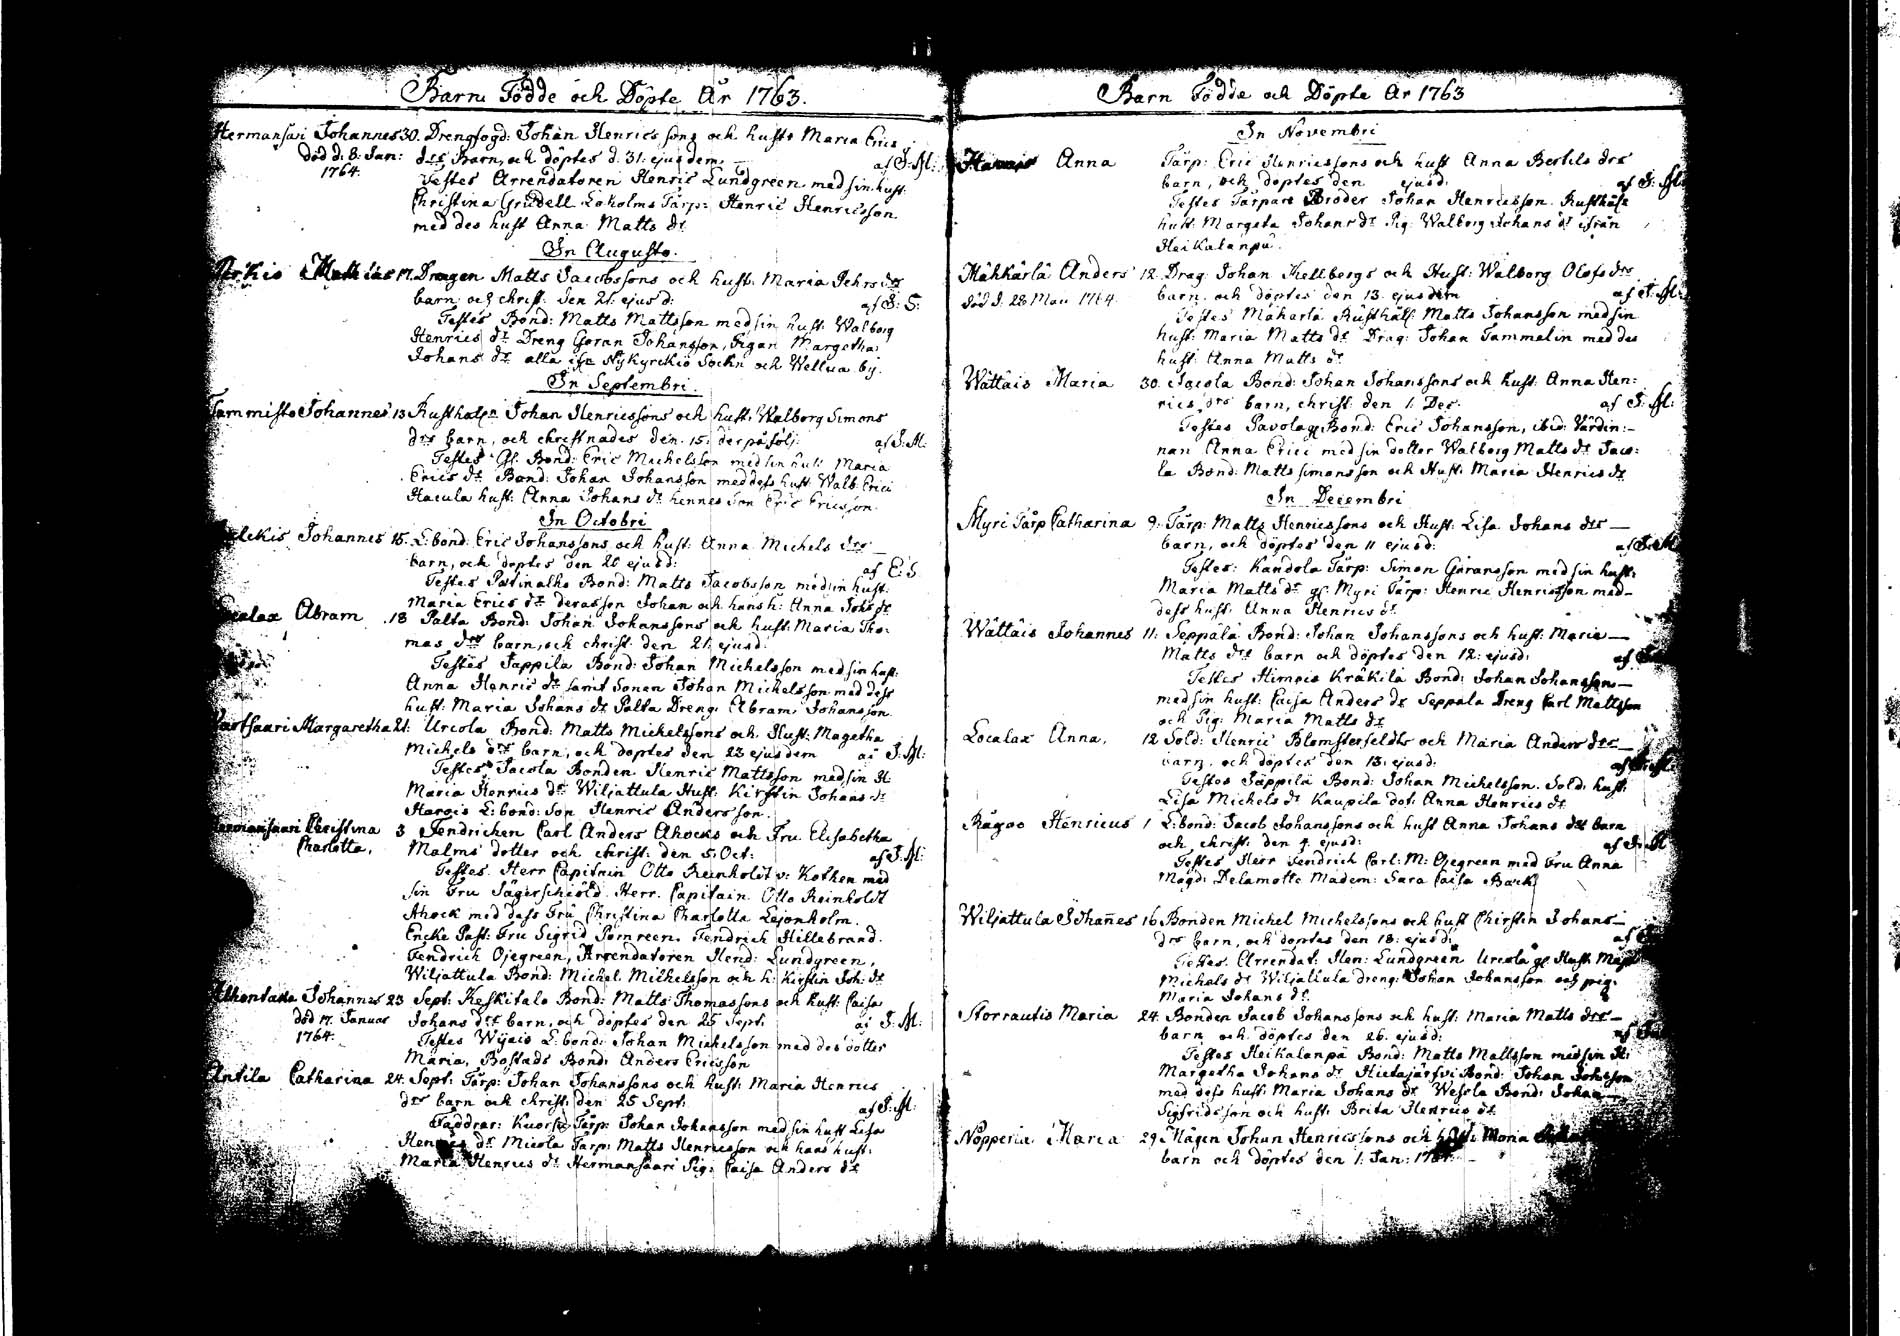 Barn Födde och Döpte År 1763.
Hermansari Johannes 30. Drengfogd: Johan Henrics sons och hust: Maria Erics
död d: 8: Jan: drs Barn, och döptes d. 31: ejusdem. af J: M:
1764. Testes Arrendatoren Henric Lundgreen med sin hust:
Christina Grudell Loholms Tårp: Henric Henricsson
med des hust Anna Matts dr
In Augusto.
Mathias 17. Dragen Matts Jacobssons och hust: Maria
barn och christ: den 21: ejusd: af S:
Testes Bond: Matts Mattsson med sin hust: Walborg
Henrics dr Dreng Göran Johansson, Pigan Margetha
Johans dr alla ifr. Nykyrckio Sockn och Wellua by.
In Septembri.
Tammisto Johannes 13 Rusthåln Johan Henricssons och hust: Walborg Simons
drs barn, och christnades den 15: derpåfölj: af J. M:
Testes Gl: Bond: Eric Michelsson med sin hust: Maria
Erics dr Bond: Johan Johansson med dess hust: Walb: Erici
Hacula hust: Anna Johans dr hennes Son Eric Ericsson.
In Octobri
Johannes 15. L:bond: Eric Johanssons och hust: Anna Michels drs
barn, och döptes den 20 ejusd: af E: S.
Testes Patinalho Bond: Matts Jacobsson med sin hust:
Maria Erics dr derasson Johan och hans h: Anna Johs dr
Abram 18 Palta Bond: Johan Johanssons och hust: Maria Tho:
mas drs barn, och christ: den 21: ejusd:
Testes Jappila Bond: Johan Michelsson med sin hust:
Anna Henric dr samt Sonen Johan Michelsson med dess
hust: Maria Johans dr Palta Dreng: Abram Johansson
Margaretha 21: Urcola Bond: Matts Michelssons och Hust: Magetha
Michels drs barn, och döptes den 23 ejusdem af J: M:
Testes Jacola Bonden Henric Mattsson med sin H:
Maria Henrics dr Wiljattula Hust: Kirstin Johans dr
Harois L:bond: Son Henric Andersson.
Hermansaari Christina 3 Fendrichen Carl Anders Ahocks och Fru Elisabetha
Charlotta, Malms dotter och christ: den 5: Oct: af J: M:
Testes Herr Capitain Otto Reinholdt v: Kothen med
sin Fru Jägerschiold Herr. Capitain Otto Reinholdt
Ahock med dess Fru Christina Charlotta Lejonholm.
Encke Past: Fru Sigrid Fendrich Hillebrand.
Fendrich Ojegreen, Arrendatoren Hend: Lundgreen,
Wiljattula Bond: Michel Michelsson och h: Kirstin Joh: dr
Johannes 23 Sept. Keskitalo Bond: Matts Thomassons och hust: Caisa
död 17. Januar Johans drs barn, och döptes den 25 Sept: af J: M:
1764. Testes Wijais L:bond: Johan Michelsson med des dotter
Maria, Bostads Bond: Anders Ericsson
Antila Catharina 24. Sept: Tårp: Johan Johanssons och hust: Maria Henrics
drs barn och christ: den 25 Sept: af J: M:
Faddrar: Tårp: Johan Johansson med sin hust Lisa
dr Micola Tårp: Matts Henricsson och hans hust:
Maria Henrics dr Hermansaari Pig: Caisa Anders dr
Barn Födde och Döpte År 1763
In Novembri
Anna Tårp: Eric Henricssons och hust Anna Bertils drs
barn, och döptes den ejusd. af J: M:
Testes Tårpare Broder Johan Henricsson. Rusthåls
hust: Margeta Johans dr Pig: Walborg Johans dr ifrån
Heikalanpä.
Anders 12. Drag: Johan Kellbergs och Hust: Walborg Olofs drs
död d. 28 Maii 1764. barn, och döptes den 13. ejusdem af J: M:
Testes Mäkerlä Rusthåll: Matts Johansson med sin
hust: Maria Matts dr Drag: Johan Tammelin med des
hust: Anna Matts dr
Wättäis Maria 30. Jacola Bond: Johan Johanssons och hust: Anna Hen:
rics drs barn, christ: den 1: Dec: af J: M:
Testes Bond: Eric Johansson, ibid: Värdin:
nan Anna Erici med sin dotter Walborg Matts dr Jaco:
la Bond: Matts simonsson och Hust: Maria Henrics dr
In Decembri
Myri Tårp Catharina 9: Tårp: Matts Henricssons och Hust: Lisa Johans drs
barn, och döptes den 11 ejusd: af J: M
Testes: Kandola Tårp: Simon Göransson med sin hust:
Maria Matts dr gl: Myri Tårp: Henric Henricsson med
dess hust: Anna Henrics dr
Wättäis Johannes 11: Seppälä Bond: Johan Johanssons och hust: Maria
Matts drs barn och döptes den 12: ejusd:
Testes Himois Kräkilä Bond: Johan Johansson
med sin hust: Caisa Anders dr Seppala Dreng Carl Mattsson
och Pig: Maria Matts dr
Localax Anna, 12 Sold: Henric Blomsterfeldts och Maria Anders drs
barn, och döptes den 13: ejusd:
Testes Jäppilä Bond: Johan Michelsson. Sold: hust:
Lisa Michels dr Kaupila dot: Anna Henrics dr
Henricus 1 L:bond: Jacob Johanssons och hust Anna Johans drs barn
och, christ: den 4. ejusd: af J: M
Testes Herr Fendrich Carl: M: Ojegreen med Fru Anna
Magd: Delamotte Madem: Sara Caisa Bäck
Wiljattula Johañes 16. Bonden Michel Michelssons och hust Chirstin Johans
drs barn, och döptes den 18: ejusd:
Testes Arrendat: Hen: Lundgreen Urcola gl: Hust:
Michels dr Wiljattula dreng: Johan Johansson och pig:
Maria Johans dr
Storrautis Maria 24. Bonden Jacob Johanssons och hust: Maria Matts drs
barn och döptes den 26. ejusd:
Testes Heikalanpä Bond: Matts Mattsson med sin H:
Margetha Johans dr Hietajärfvi Bond: Johan
med dess hust: Maria Johans dr Wessla Bond: Johan
Sigfridsson och hust: Brita Henrics dr
Nopperla Maria 29. Johan Henricssons och Maria
barn och döptes den 1. Jan: